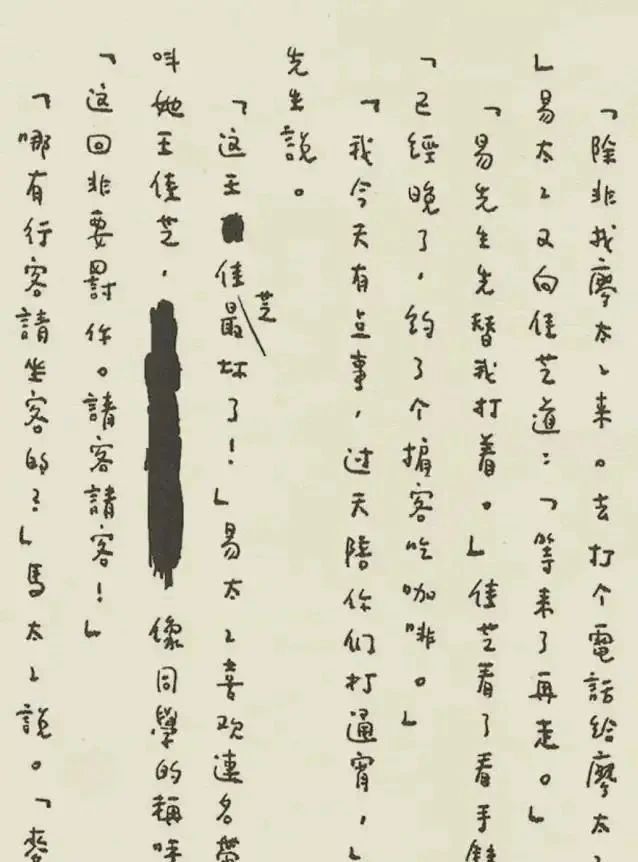 「除非找廖太〻来。去打个電話给廖太〻
」易太〻又向佳芝道：「等来了再走。」
「易先生先替我打着。」佳芝看了看手
「已經晚了，约了个掮客吃咖啡。」
「我今天有点事，过天陪你们打通宵，」
先生說。
「这王佳芝最坏了！」易太〻喜欢連名帶
叫她王佳芝，像同學的稱呼
「这回非要罰你。請客請客！」
「哪有行客請坐客的？」馬太〻說。「